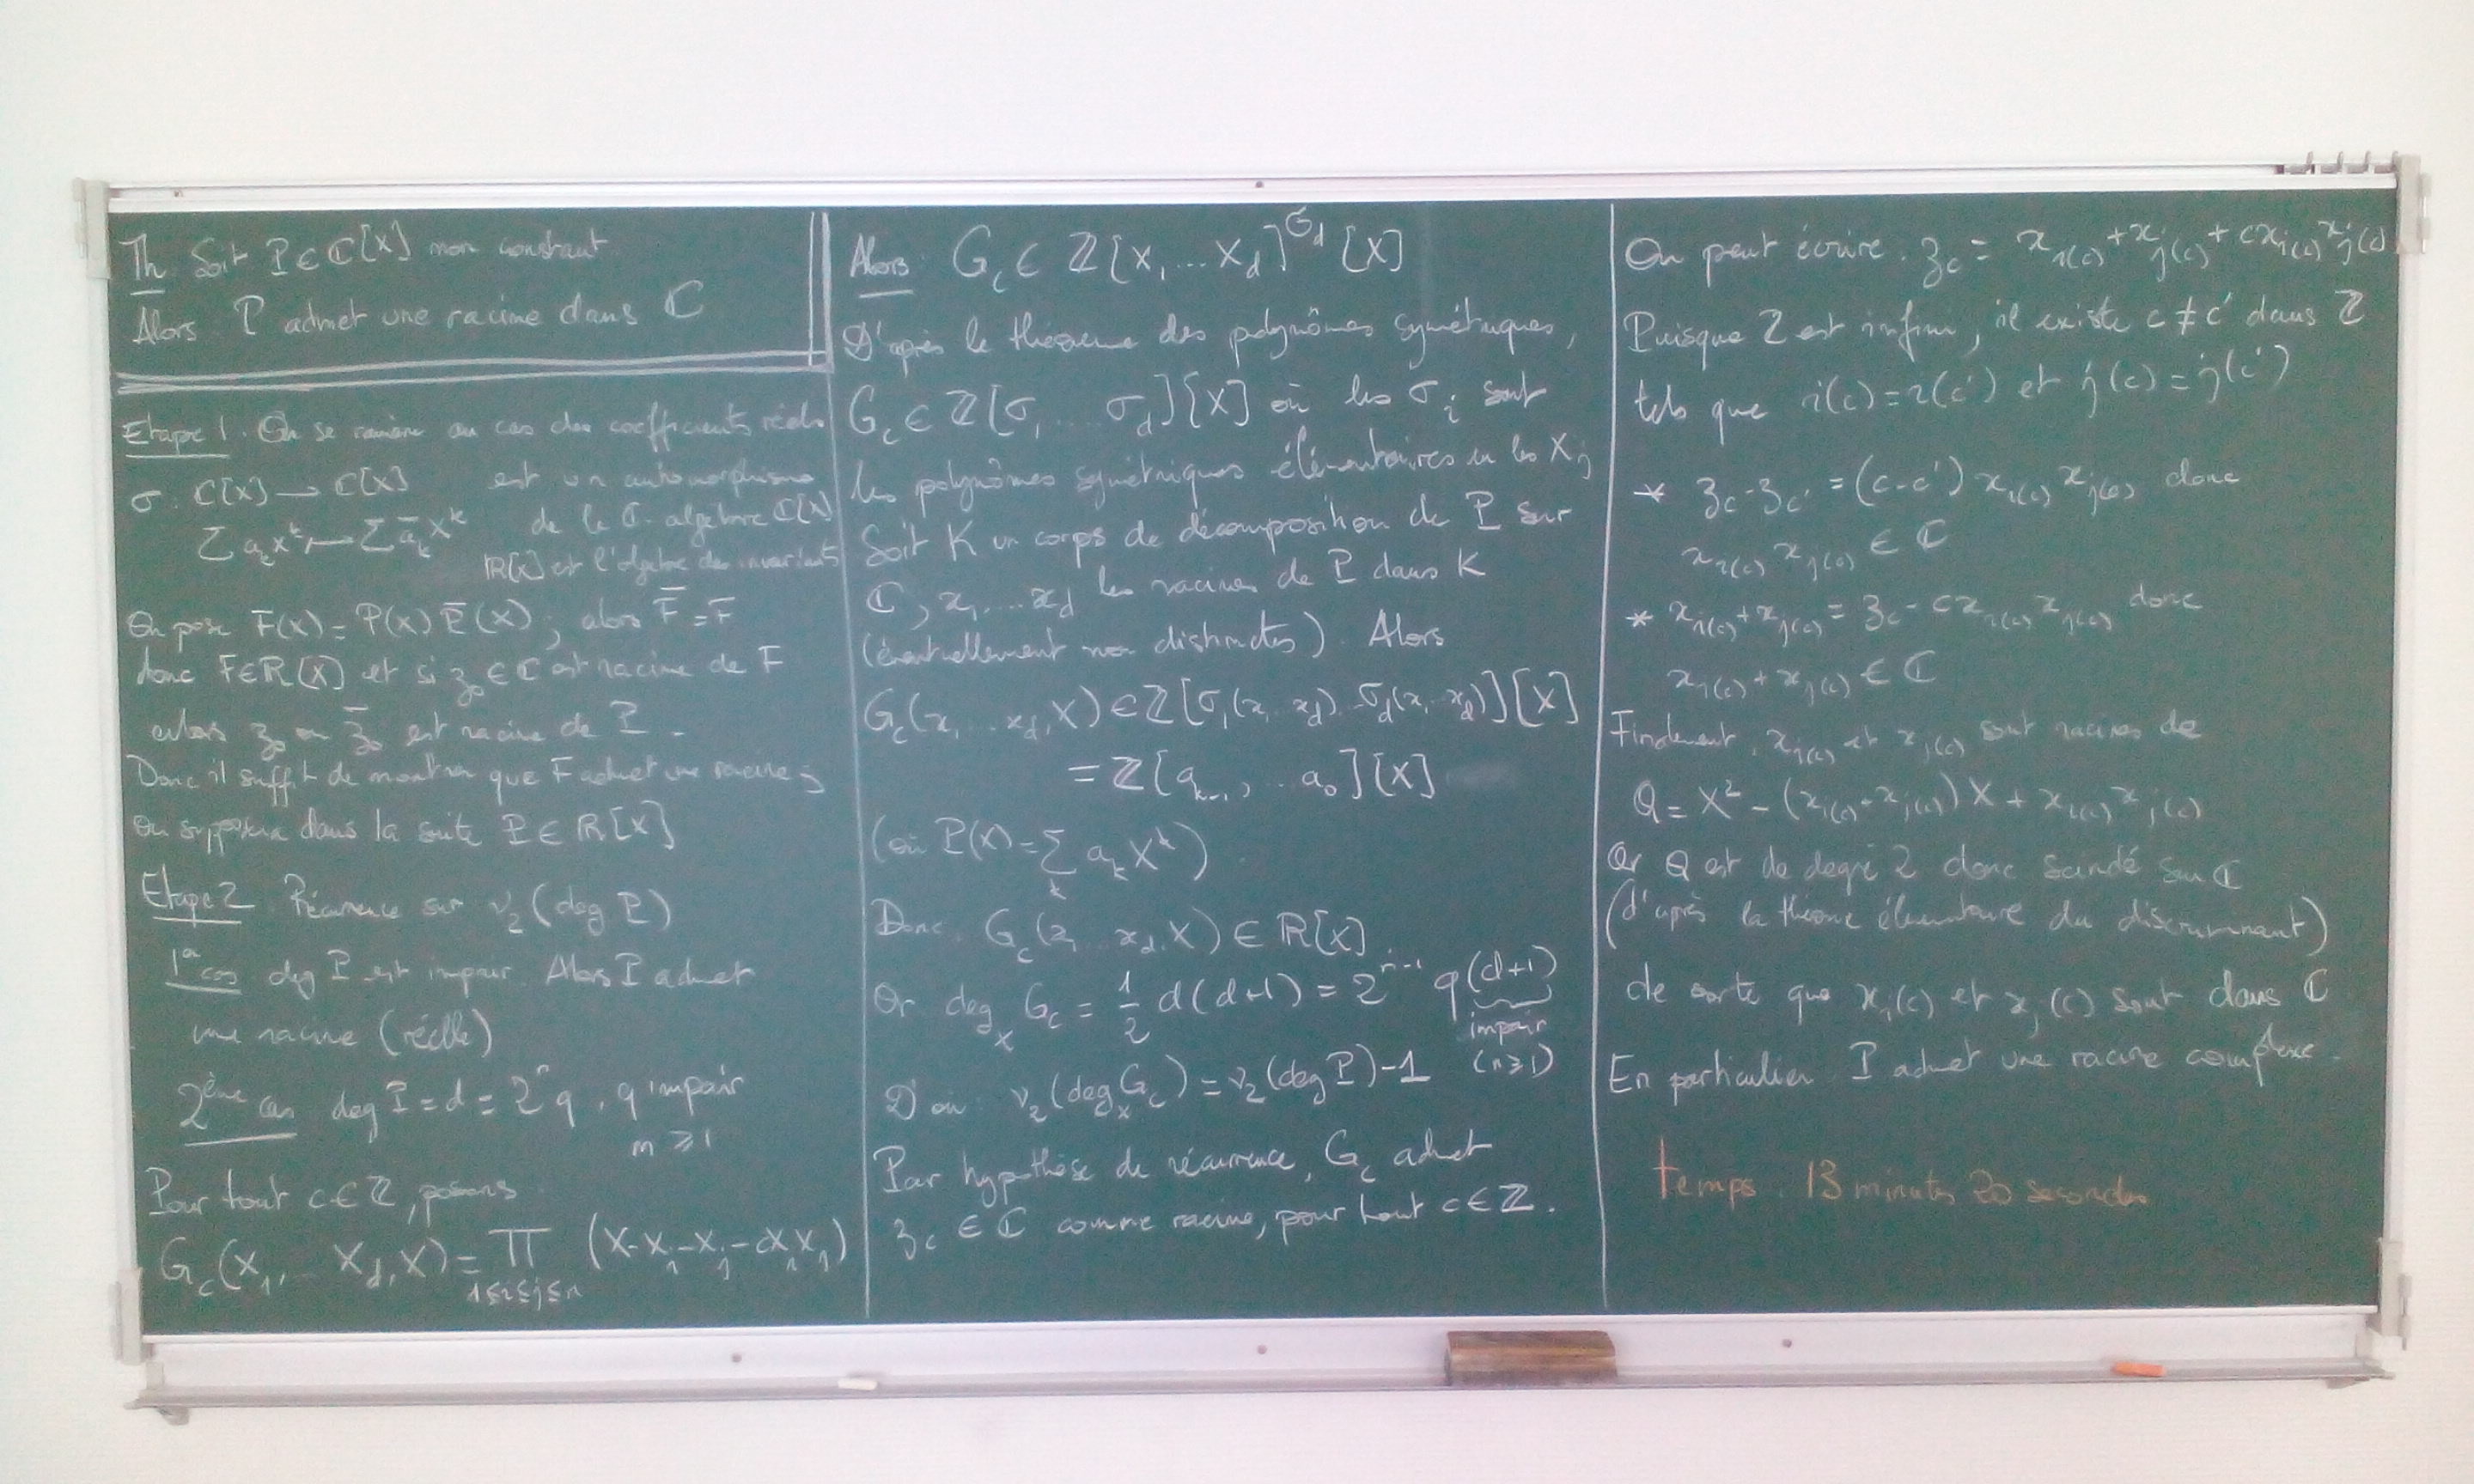 Th Soit P ∈ ℂ[X] non constant
Alors P admet une racine dans ℂ
Etape 1. On se ramène au cas des coefficients réels
σ : ℂ[X] → ℂ[X] est un automorphisme
Σ a_k X^k ↦ Σ ā_k X^k de la ℂ-algèbre ℂ[X]
ℝ[X] est l'algèbre des invariants
On pose F(X) = P(X) P̄(X), alors F̄ = F
donc F ∈ ℝ[X] et si z₀ ∈ ℂ est racine de F
alors z₀ ou z̄₀ est racine de P.
Donc il suffit de montrer que F admet une racine ;
on supposera dans la suite P ∈ ℝ[X]
Etape 2 Récurrence sur ν₂(deg P)
1er cas deg P est impair. Alors P admet
une racine (réelle)
2ème cas deg P = d = 2^n q, q impair
n ≥ 1
Pour tout c ∈ ℤ, posons
G_c(X₁, ... X_d, X) = ∏_{1≤i≤j≤n} (X - X_i - X_j - cX_iX_j)
Alors G_c ∈ ℤ[X₁ ... X_d]^{𝔖_d} [X]
D'après le théorème des polynômes symétriques,
G_c ∈ ℤ[σ₁ ... σ_d][X] où les σ_i sont
les polynômes symétriques élémentaires en les X_j
Soit K un corps de décomposition de P sur
ℂ, x₁ ... x_d les racines de P dans K
(éventuellement non distinctes). Alors
G_c(x₁ ... x_d, X) ∈ ℤ[σ₁(x₁ ... x_d) ... σ_d(x₁ ... x_d)][X]
= ℤ[a_{k-1}, ... a₀][X]
(où P(X) = Σ_k a_k X^k)
Donc G_c(x₁ ... x_d, X) ∈ ℝ[X]
Or deg_X G_c = ½ d(d+1) = 2^{n-1} q(d+1)
impair
(n≥1)
D'où : ν₂(deg_X G_c) = ν₂(deg P) - 1
Par hypothèse de récurrence, G_c admet
z_c ∈ ℂ comme racine, pour tout c ∈ ℤ.
On peut écrire. z_c = x_{i(c)} + x_{j(c)} + c x_{i(c)} x_{j(c)}
Puisque ℤ est infini, il existe c ≠ c' dans ℤ
tels que i(c) = i(c') et j(c) = j(c')
* z_c - z_{c'} = (c - c') x_{i(c)} x_{j(c)} donc
x_{i(c)} x_{j(c)} ∈ ℂ
* x_{i(c)} + x_{j(c)} = z_c - c x_{i(c)} x_{j(c)} donc
x_{i(c)} + x_{j(c)} ∈ ℂ
Finalement, x_{i(c)} et x_{j(c)} sont racines de
Q = X² - (x_{i(c)} + x_{j(c)}) X + x_{i(c)} x_{j(c)}
Or Q est de degré 2 donc scindé sur ℂ
(d'après la théorie élémentaire du discriminant)
de sorte que x_i(c) et x_j(c) sont dans ℂ
En particulier P admet une racine complexe.
temps : 13 minutes 20 secondes